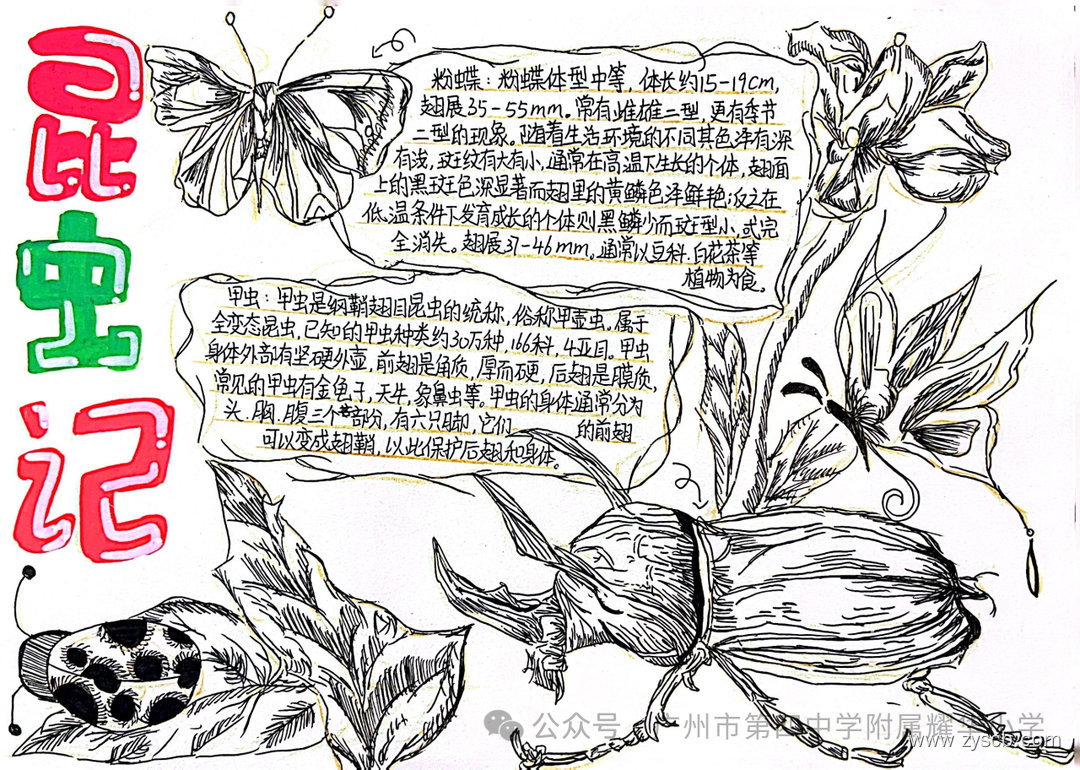 昆虫记
粉蝶：粉蝶体型中等，体长约15-19cm，
翅展35-55mm。常有雌雄二型，更有季节
二型的现象。随着生活环境的不同其色泽有深
有浅，斑纹有大有小，通常在高温下生长的个体，翅面
上的黑斑色深显著而翅里的黄鳞色泽鲜艳；反之在
低温条件下发育成长的个体则黑鳞少而斑型小，或完
全消失。翅展37-46mm。通常以豆科.白花茶等
植物为食。
甲虫：甲虫是纲鞘翅目昆虫的统称，俗称甲壳虫。属于
全变态昆虫，已知的甲虫种类约30万种，166科，4亚目。甲虫
身体外部有坚硬外壳，前翅是角质，厚而硬，后翅是膜质，
常见的甲虫有金龟子，天牛，象鼻虫等。甲虫的身体通常分为
头.胸.腹三个部分，有六只脚，它们的前翅
可以变成翅鞘，以此保护后翅和身体。
公众号 州市第四中学附属耀华小学
www.zyscb.com